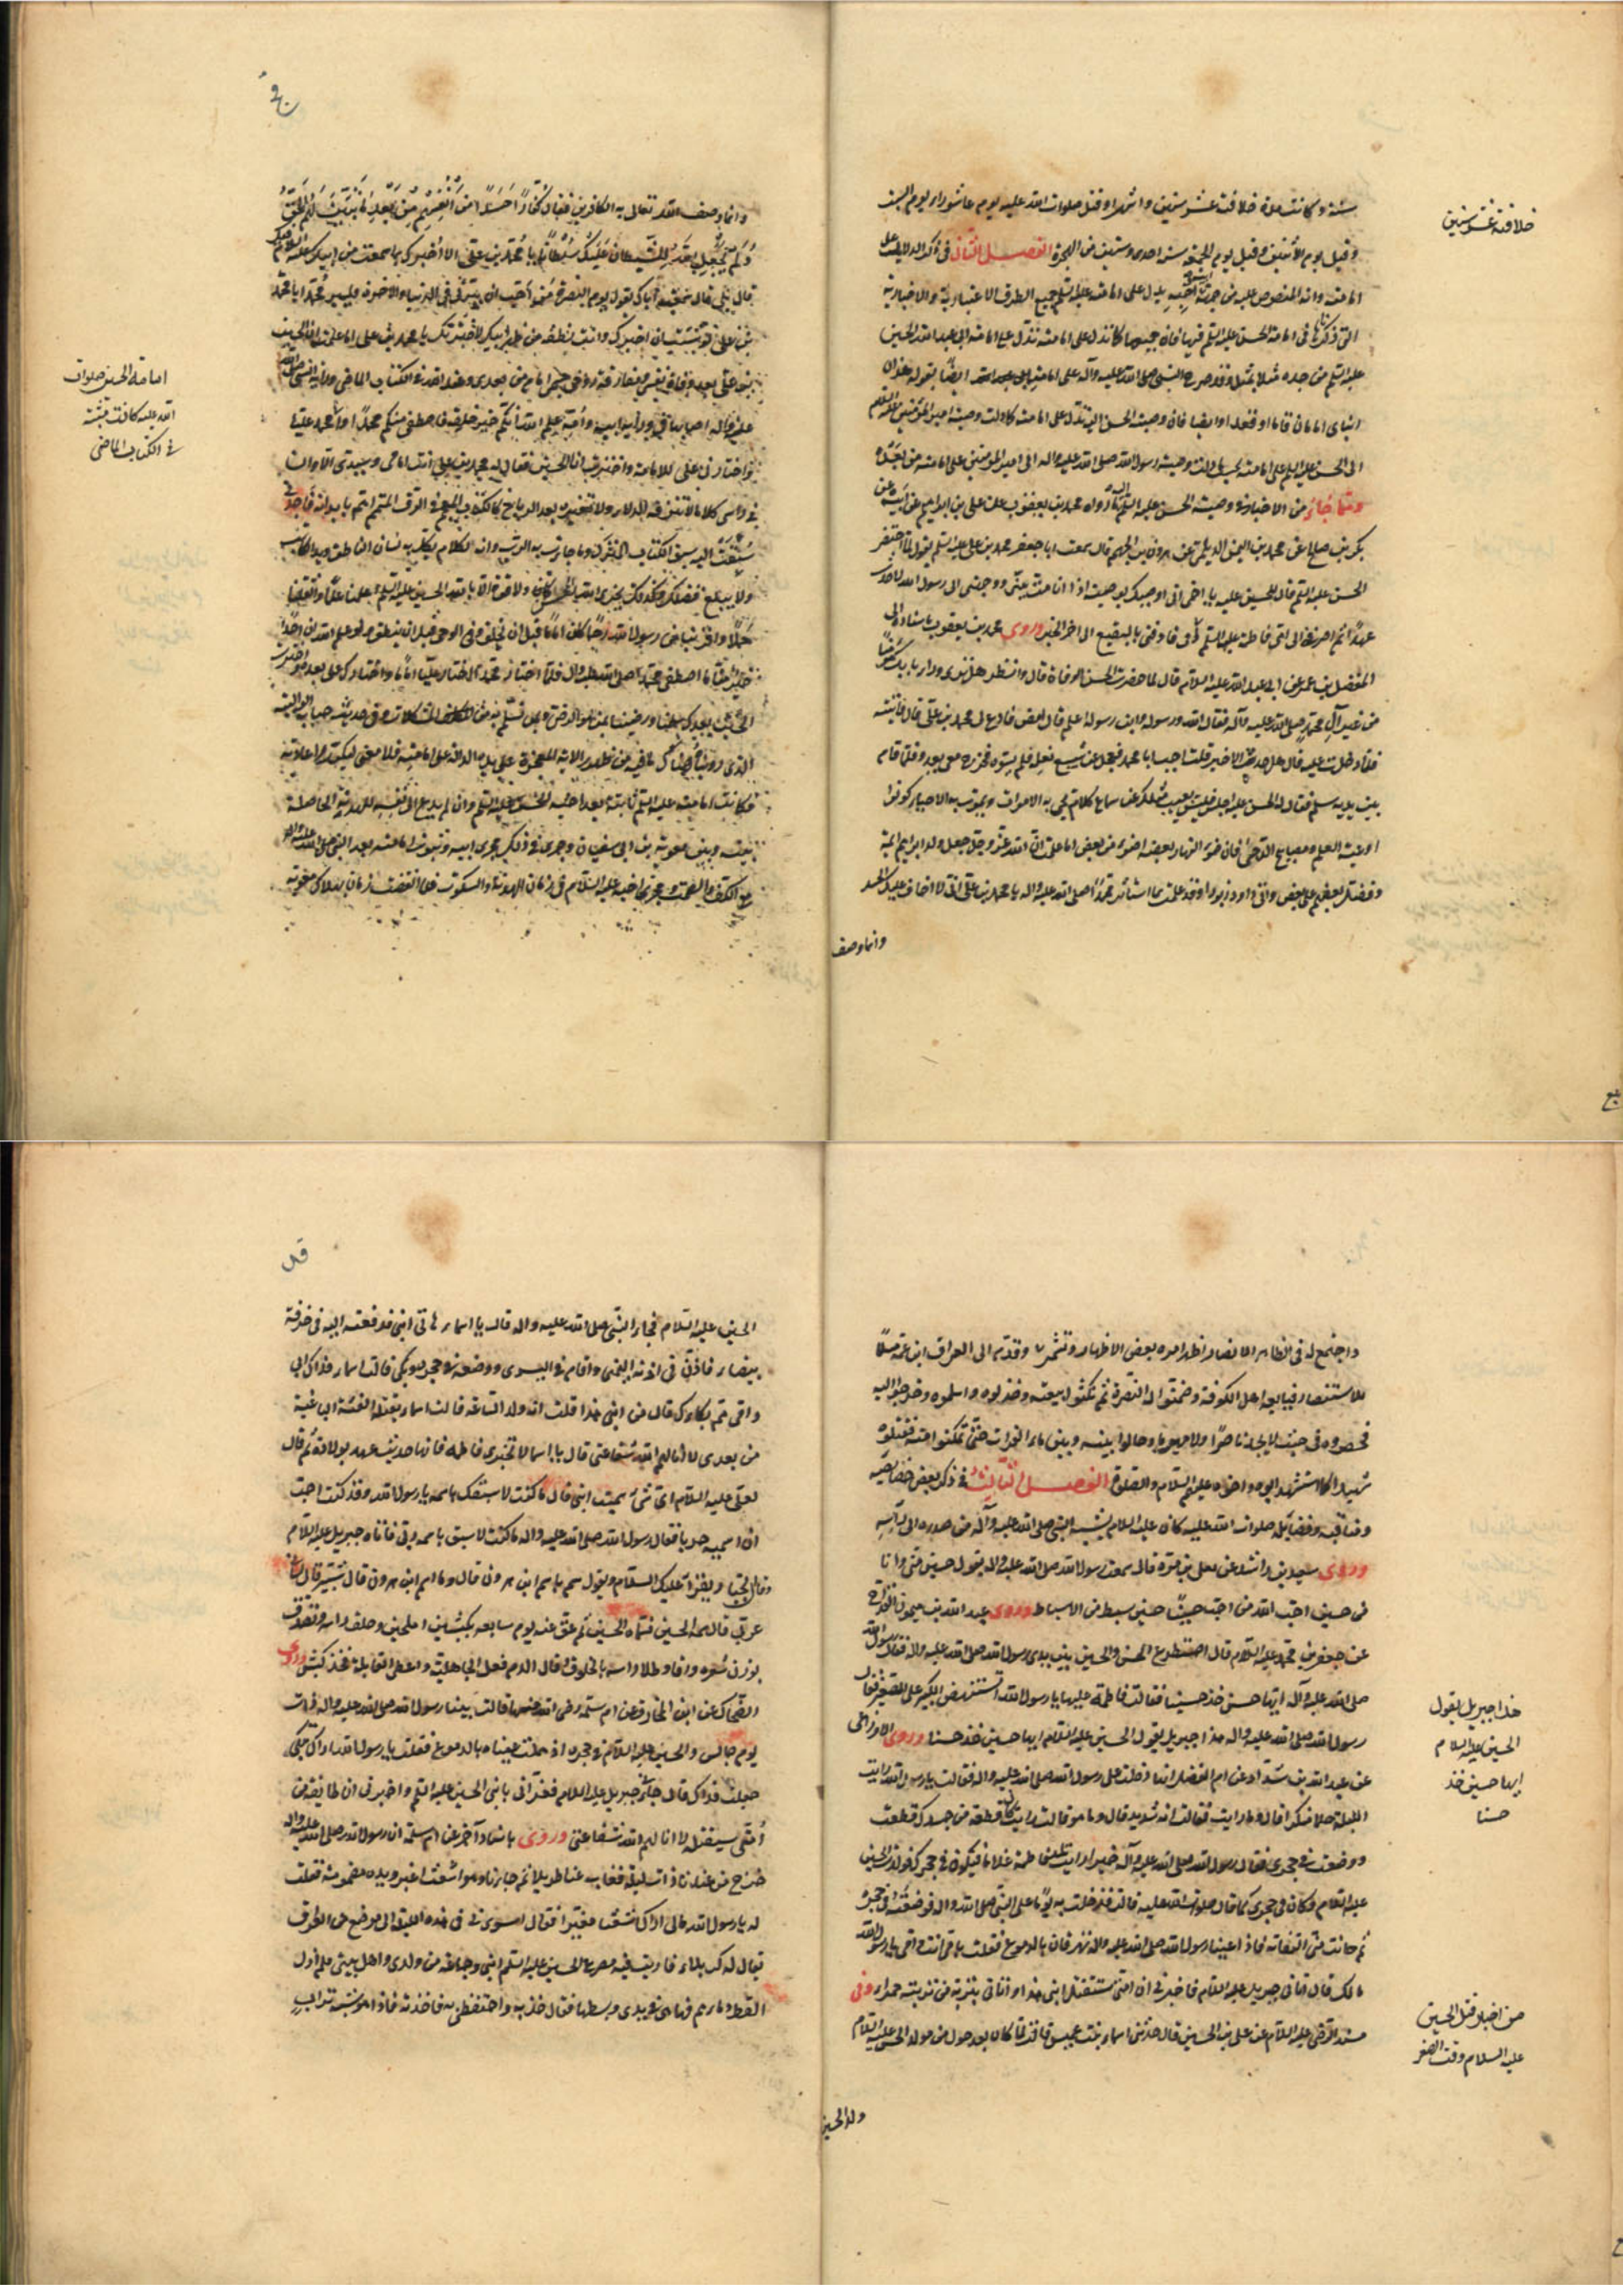 خلافته عشر سنين
سنة وكانت مدة خلافته عشر سنين واشهرا وقتل صلوات الله عليه يوم عاشورا يوم السبت
وقيل يوم الاثنين وقيل يوم الجمعة سنة احدى وستين من الهجرة الفصل الثاني في ذكر الدلالة على
امامته وانه المنصوص عليه من جهة ابيه واخيه يدل على امامته عليه السلم جميع الطرق الاعتبارية والاخبارية
التي ذكرناها في امامة الحسن عليه السلم فانها جميعها كما تدل على امامته تدل على امامة ابي عبد الله الحسين
عليه السلم من جده مثلا بمثل وقد صرح النبي صلى الله عليه وآله على امامته ايضا بقوله هذان
ابناي امامان قاما او قعدا وايضا فان وصية الحسن اليه تدل على امامته كما دلت وصية امير المؤمنين عليه السلم
الى الحسن عليه السلم على امامته بحسب ما دلت وصية رسول الله صلى الله عليه واله الى امير المؤمنين على امامته من بعده
ومما جاء من الاخبار في وصية الحسن عليه السلم اليه ما رواه محمد بن يعقوب عن علي بن ابراهيم عن ابيه عن
بكر بن صالح عن محمد بن سليمن الديلمي عن هرون بن الجهم قال سمعت ابا جعفر محمد بن علي عليه السلم يقول لما احتضر
الحسن عليه السلم قال للحسين عليه يا اخي اني اوصيك بوصية اذا انا مت فهيئني ووجهني الى رسول الله لاحدث به
عهدا ثم اصرفني الى امي فاطمة عليها السلم ثم ردني فادفني بالبقيع الى اخر الخبر وروى محمد بن يعقوب باسناده الى
المفضل بن عمر عن ابي عبد الله عليه السلام قال لما حضرت الحسن الوفاة قال يا قنبر انظر هل ترى وراء بابك مؤمنا
من غير آل محمد صلى الله عليه وآله فقال الله ورسوله وابن رسوله اعلم قال امض فادع لي محمد بن علي قال فاتيته
فلما دخلت عليه قال هل حدث الا خير قلت اجب ابا محمد فعجل عن شسع نعله فلم يسوه فخرج معي يعدو فلما قام
بين يديه سلم فقال له الحسن عليه اجلس فليس يغيب مثلك عن سماع كلام يحيى به الاموات ويموت به الاحياء كونوا
اوعية العلم ومصابيح الدجى فان ضوء النهار بعضه اضوء من بعض اما علمت ان الله عز وجل جعل ولد ابراهيم ائمة
وفضل بعضهم على بعض واتى داود زبورا وقد علمت بما استاثر محمدا صلى الله عليه واله يا محمد بن علي اني لا اخاف عليك الحسد
وانما وصف
وانما وصف الله تعالى به الكافرين فقال كفارا حسدا من عند انفسهم من بعد ما تبين لهم الحق
ولم يجعل الله للشيطان عليك سلطانا يا محمد بن علي الا اخبرك بما سمعت من ابيك عليه السلام فيك
قال بلى قال سمعت اباك يقول يوم البصرة من احب ان يبرني في الدنيا والاخرة فليبر محمدا يا محمد
بن علي لو شئت ان اخبرك وانت نطفة في ظهر ابيك لاخبرتك يا محمد بن علي اما علمت ان الحسين
بن علي بعد وفاة نفسي ومفارقة روحي جسمي امام من بعدي وعند الله في الكتاب الماضي وراثة النبي صلى الله
عليه وآله اصابها في وراثة ابيه وامه علم الله انكم خير خلقه فاصطفى منكم محمدا واختار محمد عليا
واختارني علي للامامة واخترت انا الحسين فقال له محمد بن علي انت امامي وسيدي الا وان
في راسي كلاما لا تنزفه الدلاء ولا تغيره بعد الرياح كالكتاب المعجم في الرق المنمنم اهم بابدائه فاجدني
سبقت اليه سبق الكتاب المنزل وما جاءت به الرسل وانه لكلام يكل به لسان الناطق ويد الكاتب
ولا يبلغ فضلك وكذلك يجزي الله المحسنين ولا قوة الا بالله الحسين عليه السلم اعلمنا علما واثقلنا
حلما واقربنا من رسول الله رحما كان اماما قبل ان يخلق وقرء الوحي قبل ان ينطق ولو علم الله ان احدا
خير منا ما اصطفى محمدا صلى الله عليه واله فلما اختار محمدا واختار محمد عليا اماما واختارك علي بعده واخترت
الحسين بعدك سلمنا ورضينا
الذي رويناه
فكانت امامته عليه السلم ثابتة بعد اخيه الحسن عليه السلم وان لم يدع الى نفسه للهدنة الحاصلة
بينه وبين معوية بن ابي سفيان وجرى في ذلك مجرى ابيه في ثبوت امامته بعد النبي صلى الله عليه واله
مع الكف والصمت ومجرى اخيه عليه السلام في زمان الهدنة والسكوت فلما انقضت زمان هلاك معوية
امامة الحسين صلوات
الله عليه كانت مثبتة
في الكتاب الماضي
واجتمع له في الظاهر الانصار اظهر امره بعض الاظهار وتشمر وقدم الى العراق ابن عمه مسلما
للاستنصار فبايعه اهل الكوفة وضمنوا له النصرة ثم نكثوا بيعته وخذلوه واسلموه وخرجوا اليه
فحصروه في حيث لا يجد ناصرا ولا مهربا وحالوا بينه وبين ماء الفرات حتى تمكنوا منه فقتلوه
شهيدا كما استشهد ابوه واخوه عليهم السلام والصلوة الفصل الثالث في ذكر بعض خصايصه
ومناقبه وفضائله صلوات الله عليه كان عليه السلام يشبه النبي صلى الله عليه وآله من صدره الى راسه
وروى سعيد بن راشد عن يعلى بن مرة قال سمعت رسول الله صلى الله عليه واله يقول حسين مني وانا
من حسين احب الله من احب حسينا حسين سبط من الاسباط وروى عبد الله بن ميمون القداح
عن جعفر بن محمد عليه السلام قال اصطرع الحسن والحسين بين يدي رسول الله صلى الله عليه واله فقال رسول الله
صلى الله عليه وآله ايها حسن خذ حسينا فقالت فاطمة عليها يا رسول الله تستنهض الكبير على الصغير فقال
رسول الله صلى الله عليه واله هذا جبريل يقول للحسين عليه السلام ايها حسين خذ حسنا وروى الاوزاعي
عن عبد الله بن شداد عن ام الفضل انها دخلت على رسول الله صلى الله عليه واله فقالت يا رسول الله رايت
الليلة حلما منكرا قال وما رايت فقالت انه شديد قال وما هو قالت رايت كان قطعة من جسدك قطعت
ووضعت في حجري فقال رسول الله صلى الله عليه وآله خيرا رايت تلد فاطمة غلاما فيكون في حجرك فولدت الحسين
عليه السلام وكان في حجري كما قال صلوات الله عليه قالت فدخلت به يوما على النبي صلى الله واله فوضعته في حجره
ثم حانت مني التفاتة فاذا عينا رسول الله صلى الله عليه واله تهرقان بالدموع فقلت بابي انت وامي يا رسول الله
مالك قال اتاني جبريل عليه السلام فاخبرني ان امتي ستقتل ابني هذا واتاني بتربة من تربته حمراء وفي
مسند الرضي عليه السلام عن علي بن الحسين قال حدثتني اسماء بنت عميس قالت لما كان بعد حول من مولد الحسن عليه السلام
هذا جبريل يقول
للحسين عليه السلام
ايها حسين خذ
حسنا
من اخبار قتل الحسين
عليه السلام وقت الصغر
ولد الحسين
الحسين عليه السلام فجاء النبي صلى الله عليه واله قال يا اسماء هاتي ابني فدفعته اليه في خرقة
بيضاء فاذن في اذنه اليمنى واقام في اليسرى ووضعه في حجره وبكى قالت اسماء فداك ابي
وامي مم بكاؤك قال من ابني هذا قلت انه ولد الساعة قال يا اسماء تقتله الفئة الباغية
من بعدي لا انالهم الله شفاعتي قال يا اسماء لا تخبري فاطمة فانها حديث عهد بولادة ثم قال
لعلي عليه السلام اي شيء سميت ابني قال ما كنت لاسبقك باسمه يا رسول الله وقد كنت احب
ان اسميه حربا فقال رسول الله صلى الله عليه واله ما كنت لاسبق باسمه ربي فاتاه جبريل عليه السلام
وقال الجبار يقرأ عليك السلام ويقول سمه باسم ابن هرون قال وما اسم ابن هرون قال شبير قال لساني
عربي قال سمه الحسين فسماه الحسين ثم عق عنه يوم سابعه بكبشين املحين وحلق راسه وتصدق
بوزن شعره ورقا وطلا راسه بالخلوق وقال الدم فعل الجاهلية واعطى القابلة فخذ كبش وروى
الضحاك عن ابن المخارق عن ام سلمة رضي الله عنها قالت بينا رسول الله صلى الله عليه واله ذات
يوم جالس والحسين عليه السلام في حجره اذ هملت عيناه بالدموع فقلت يا رسول الله اراك تبكي
جعلت فداك قال جاءني جبريل عليه السلام فعزاني بابني الحسين عليه السلم واخبرني ان طايفة من
امتي ستقتله لا انالهم الله شفاعتي وروى باسناد آخر عن ام سلمة ان رسول الله صلى الله عليه واله
خرج من عندنا ذات ليلة فغاب عنا طويلا ثم جاءنا وهو اشعث اغبر ويده مضمومة فقلت
له يا رسول الله مالي اراك شعثا مغبرا فقال اسري بي في هذه الليلة الى موضع من العراق
يقال له كربلاء فاريت فيه مصرع الحسين عليه السلم ابني وجماعة من ولدي واهل بيتي فلم ازل
القط دماءهم فهاهي في يدي وبسطها فقال خذيه واحتفظي به فاخذته فاذا هو شبه تراب